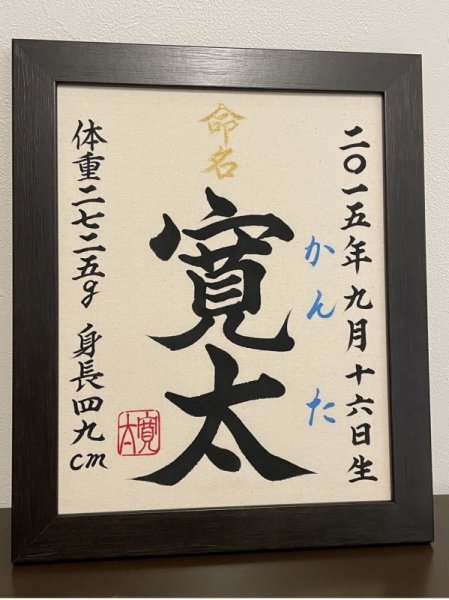 二〇一五年九月十六日生
命名
かんた
寛太
体重二七二五g 身長四九cm
寛太